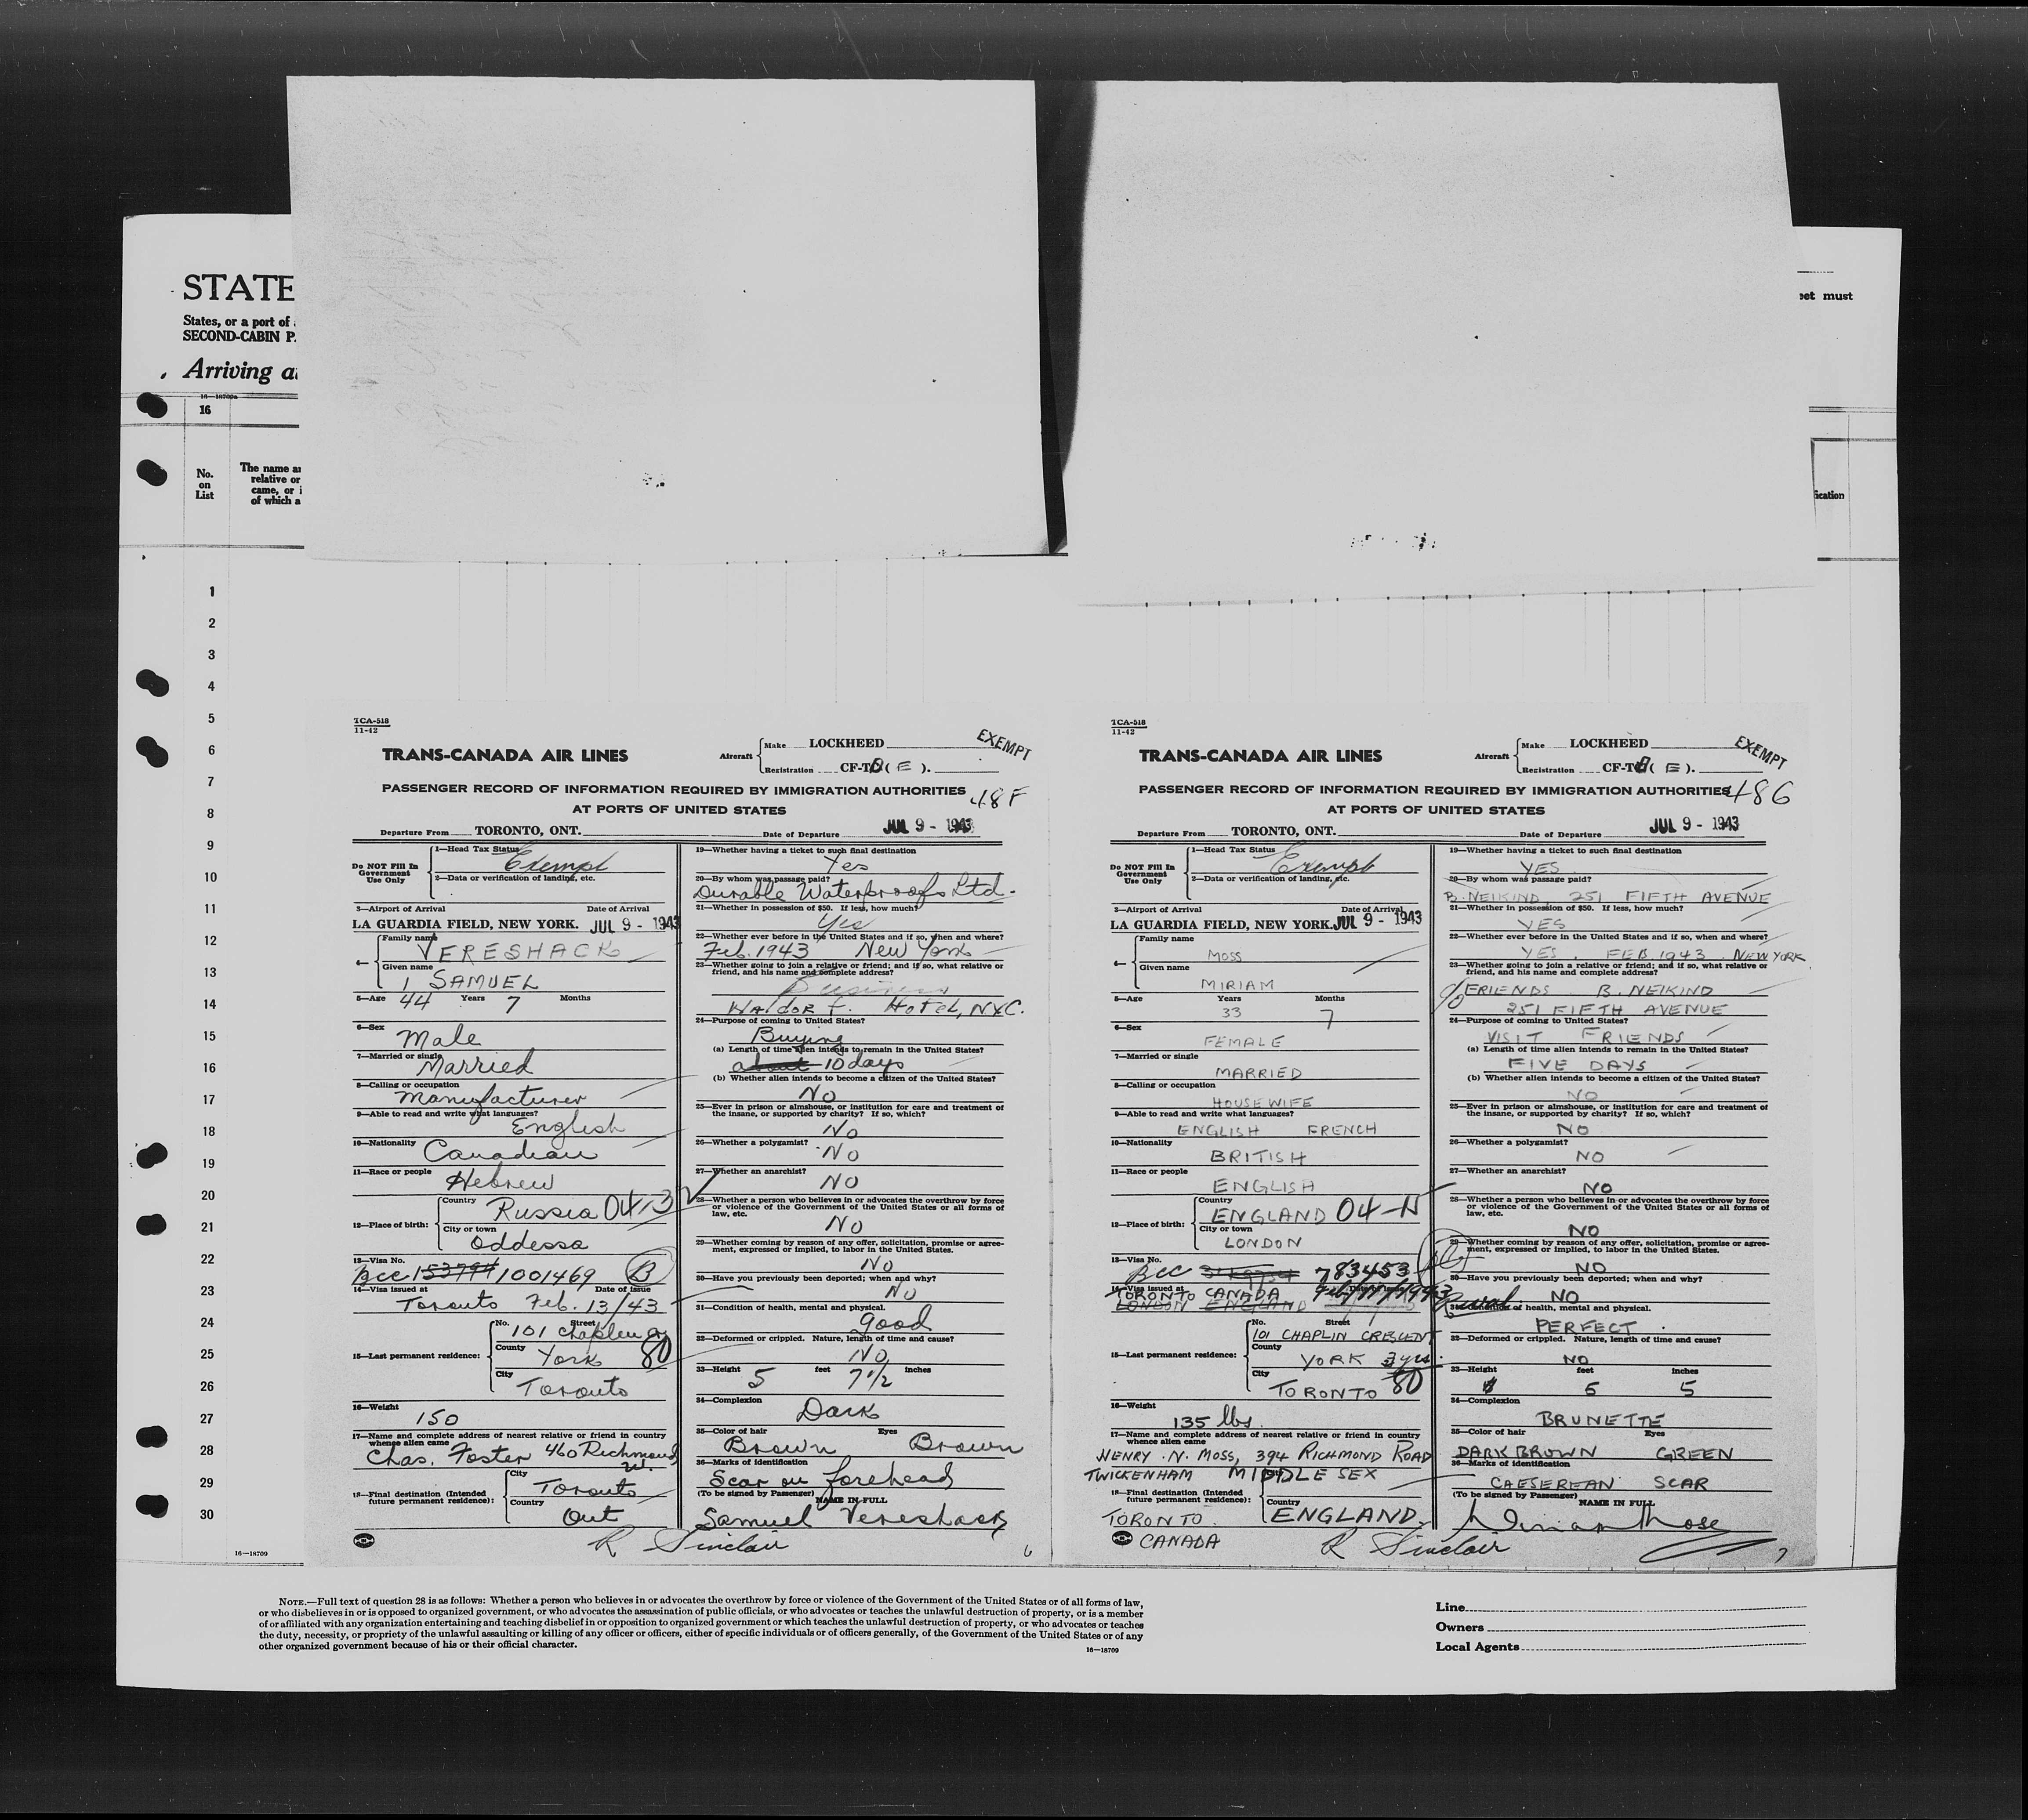 STATE
States, or a port of
SECOND-CABIN P.
Arriving a
eet must
16—18709a
16
No.
on
List
The name a
relative or
came, or i
of which a
ication
1
2
3
4
5
6
7
8
9
10
11
12
13
14
15
16
17
18
19
20
21
22
23
24
25
26
27
28
29
30
16—18709
TCA-518
11-42
TRANS-CANADA AIR LINES
Aircraft
Make LOCKHEED
Registration CF-TC ( E ).
EXEMPT
PASSENGER RECORD OF INFORMATION REQUIRED BY IMMIGRATION AUTHORITIES
48F
AT PORTS OF UNITED STATES
Departure From TORONTO, ONT. Date of Departure JUL 9 - 1943
Do NOT Fill In
Government
Use Only
1—Head Tax Status
Exempt
2—Data or verification of landing, etc.
3—Airport of Arrival Date of Arrival
LA GUARDIA FIELD, NEW YORK. JUL 9 - 1943
4—
Family name
VERESHACK
Given name
SAMUEL
5—Age 44 Years 7 Months
6—Sex
Male
7—Married or single
Married
8—Calling or occupation
Manufacturer
9—Able to read and write what languages?
English
10—Nationality
Canadian
11—Race or people
Hebrew
12—Place of birth:
Country
Russia 04-3
City or town
Oddessa
13—Visa No.
BCC 153794 1001469 B
14—Visa issued at Date of issue
Toronto Feb. 13/43
15—Last permanent residence:
No. Street
101 Chaplin
County
York 80
City
Toronto
16—Weight
150
17—Name and complete address of nearest relative or friend in country
whence alien came
Chas. Foster 460 Richmond
W.
18—Final destination (Intended
future permanent residence):
City
Toronto
Country
Ont
R Sinclair
19—Whether having a ticket to such final destination
Yes
20—By whom was passage paid?
Durable Waterproofs Ltd.
21—Whether in possession of $50. If less, how much?
Yes
22—Whether ever before in the United States and if so, when and where?
Feb. 1943 New York
23—Whether going to join a relative or friend; and if so, what relative or
friend, and his name and complete address?
Business
HOTEL, NYC.
24—Purpose of coming to United States?
Buying
(a) Length of time alien intends to remain in the United States?
about 10 days
(b) Whether alien intends to become a citizen of the United States?
No
25—Ever in prison or almshouse, or institution for care and treatment of
the insane, or supported by charity? If so, which?
No
26—Whether a polygamist?
No
27—Whether an anarchist?
No
28—Whether a person who believes in or advocates the overthrow by force
or violence of the Government of the United States or all forms of
law, etc.
No
29—Whether coming by reason of any offer, solicitation, promise or agree-
ment, expressed or implied, to labor in the United States.
No
30—Have you previously been deported; when and why?
No
31—Condition of health, mental and physical.
good
32—Deformed or crippled. Nature, length of time and cause?
No
33—Height feet inches
5 7 1/2
34—Complexion
Dark
35—Color of hair Eyes
Brown Brown
36—Marks of identification
Scar on forehead
(To be signed by Passenger) NAME IN FULL
Samuel Vereshack
6
TCA-518
11-42
TRANS-CANADA AIR LINES
Aircraft
Make LOCKHEED
Registration CF-TC ( E ).
EXEMPT
PASSENGER RECORD OF INFORMATION REQUIRED BY IMMIGRATION AUTHORITIES
48G
AT PORTS OF UNITED STATES
Departure From TORONTO, ONT. Date of Departure JUL 9 - 1943
Do NOT Fill In
Government
Use Only
1—Head Tax Status
Exempt
2—Data or verification of landing, etc.
3—Airport of Arrival Date of Arrival
LA GUARDIA FIELD, NEW YORK. JUL 9 - 1943
4—
Family name
MOSS
Given name
MIRIAM
5—Age Years Months
33 7
6—Sex
FEMALE
7—Married or single
MARRIED
8—Calling or occupation
HOUSEWIFE
9—Able to read and write what languages?
ENGLISH FRENCH
10—Nationality
BRITISH
11—Race or people
ENGLISH
12—Place of birth:
Country
ENGLAND 04-N
City or town
LONDON
13—Visa No.
BCC 783453
14—Visa issued at Date of issue
TORONTO CANADA Feb 17/1943
LONDON ENGLAND
15—Last permanent residence:
No. Street
101 CHAPLIN CRESCENT
County
YORK 3 yrs.
City
TORONTO 80
16—Weight
135 lbs.
17—Name and complete address of nearest relative or friend in country
whence alien came
HENRY . N. MOSS, 394 RICHMOND ROAD
TWICKENHAM MIDDLE SEX
18—Final destination (Intended
future permanent residence):
City
Country
TORONTO. ENGLAND.
CANADA
R Sinclair
19—Whether having a ticket to such final destination
YES
20—By whom was passage paid?
B. NEIKIND 251 FIFTH AVENUE
21—Whether in possession of $50. If less, how much?
YES
22—Whether ever before in the United States and if so, when and where?
YES. FEB. 1943. NEW YORK
23—Whether going to join a relative or friend; and if so, what relative or
friend, and his name and complete address?
c/o FRIENDS B. NEIKIND
251 FIFTH AVENUE
24—Purpose of coming to United States?
VISIT FRIENDS
(a) Length of time alien intends to remain in the United States?
FIVE DAYS
(b) Whether alien intends to become a citizen of the United States?
NO
25—Ever in prison or almshouse, or institution for care and treatment of
the insane, or supported by charity? If so, which?
NO
26—Whether a polygamist?
NO
27—Whether an anarchist?
NO
28—Whether a person who believes in or advocates the overthrow by force
or violence of the Government of the United States or all forms of
law, etc.
NO
29—Whether coming by reason of any offer, solicitation, promise or agree-
ment, expressed or implied, to labor in the United States.
NO
30—Have you previously been deported; when and why?
NO
31—Condition of health, mental and physical.
PERFECT.
32—Deformed or crippled. Nature, length of time and cause?
NO
33—Height feet inches
5 5
34—Complexion
BRUNETTE
35—Color of hair Eyes
DARK BROWN GREEN
36—Marks of identification
CAESEREAN SCAR
(To be signed by Passenger) NAME IN FULL
Miriam Moss
7
NOTE.—Full text of question 28 is as follows: Whether a person who believes in or advocates the overthrow by force or violence of the Government of the United States or of all forms of law,
or who disbelieves in or is opposed to organized government, or who advocates the assassination of public officials, or who advocates or teaches the unlawful destruction of property, or is a member
of or affiliated with any organization entertaining and teaching disbelief in or opposition to organized government or which teaches the unlawful destruction of property, or who advocates or teaches
the duty, necessity, or propriety of the unlawful assaulting or killing of any officer or officers, either of specific individuals or of officers generally, of the Government of the United States or of any
other organized government because of his or their official character.
16—18709
Line
Owners
Local Agents